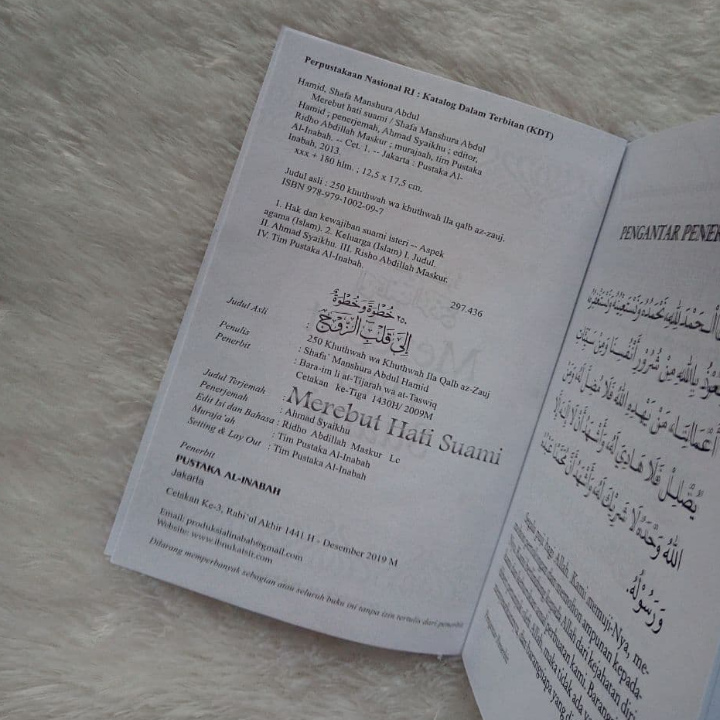 Perpustakaan Nasional RI : Katalog Dalam Terbitan (KDT)
Hamid, Shafa Manshura Abdul
Merebut hati suami / Shafa Manshura Abdul
Hamid ; penerjemah, Ahmad Syaikhu ; editor,
Ridho Abdillah Maskur ; murajaah, tim Pustaka
Al-Inabah. -- Cet. 1. -- Jakarta : Pustaka Al-
Inabah, 2013.
xxx + 180 hlm. ; 12,5 x 17,5 cm.
Judul asli : 250 khuthwah wa khuthwah ila qalb az-zauj.
ISBN 978-979-1002-09-7
1. Hak dan kewajiban suami isteri -- Aspek
agama (Islam). 2. Keluarga (Islam) I. Judul.
II. Ahmad Syaikhu. III. Risho Abdillah Maskur.
IV. Tim Pustaka Al-Inabah.
297.436
Judul Asli :
٢٥٠ خُطْوَةً وَخُطْوَةً
إِلَى قَلْبِ الزَّوْجِ
250 Khuthwah wa Khuthwah Ila Qalb Az-Zauj
Penulis : Shafa` Manshura Abdul Hamid
Penerbit : Bara-im li at-Tijarah wa at-Taswiq
Cetakan ke-Tiga 1430H/ 2009M
Judul Terjemah : Merebut Hati Suami
Penerjemah : Ahmad Syaikhu
Edit Isi dan Bahasa : Ridho Abdillah Maskur Lc
Muraja'ah : Tim Pustaka Al-Inabah
Setting & Lay Out : Tim Pustaka Al-Inabah
Penerbit
PUSTAKA AL-INABAH
Jakarta
Cetakan Ke-3, Rabi`ul Akhir 1441 H - Desember 2019 M
Email: produksialinabah@gmail.com
Website: www.ibnukatsir.com
Dilarang memperbanyak sebagian atau seluruh buku ini tanpa izin tertulis dari penerbit
PENGANTAR PENER
الْحَمْدَ لِلَّهِ نَحْمَدُهُ وَنَسْتَعِينُهُ وَنَسْتَغْفِرُهُ
بِاللَّهِ مِنْ شُرُورِ أَنْفُسِنَا وَمِنْ سَيِّئَاتِ
أَعْمَالِنَا، مَنْ يَهْدِهِ اللَّهُ فَلَا مُضِلَّ لَهُ وَمَنْ
يُضْلِلْ فَلَا هَادِيَ لَهُ وَأَشْهَدُ أَنْ لَا إِلَهَ إِلَّا
اللَّهُ وَحْدَهُ لَا شَرِيكَ لَهُ وَأَشْهَدُ أَنَّ مُحَمَّدًا عَبْدُهُ
وَرَسُولُهُ.
bagi Allah. Kami memuji-Nya, me-
dan memohon ampunan kepada-
kepada Allah dari kejahatan diri
perbuatan kami. Barang
Allah, maka tidak ada
dan barangsiapa yang